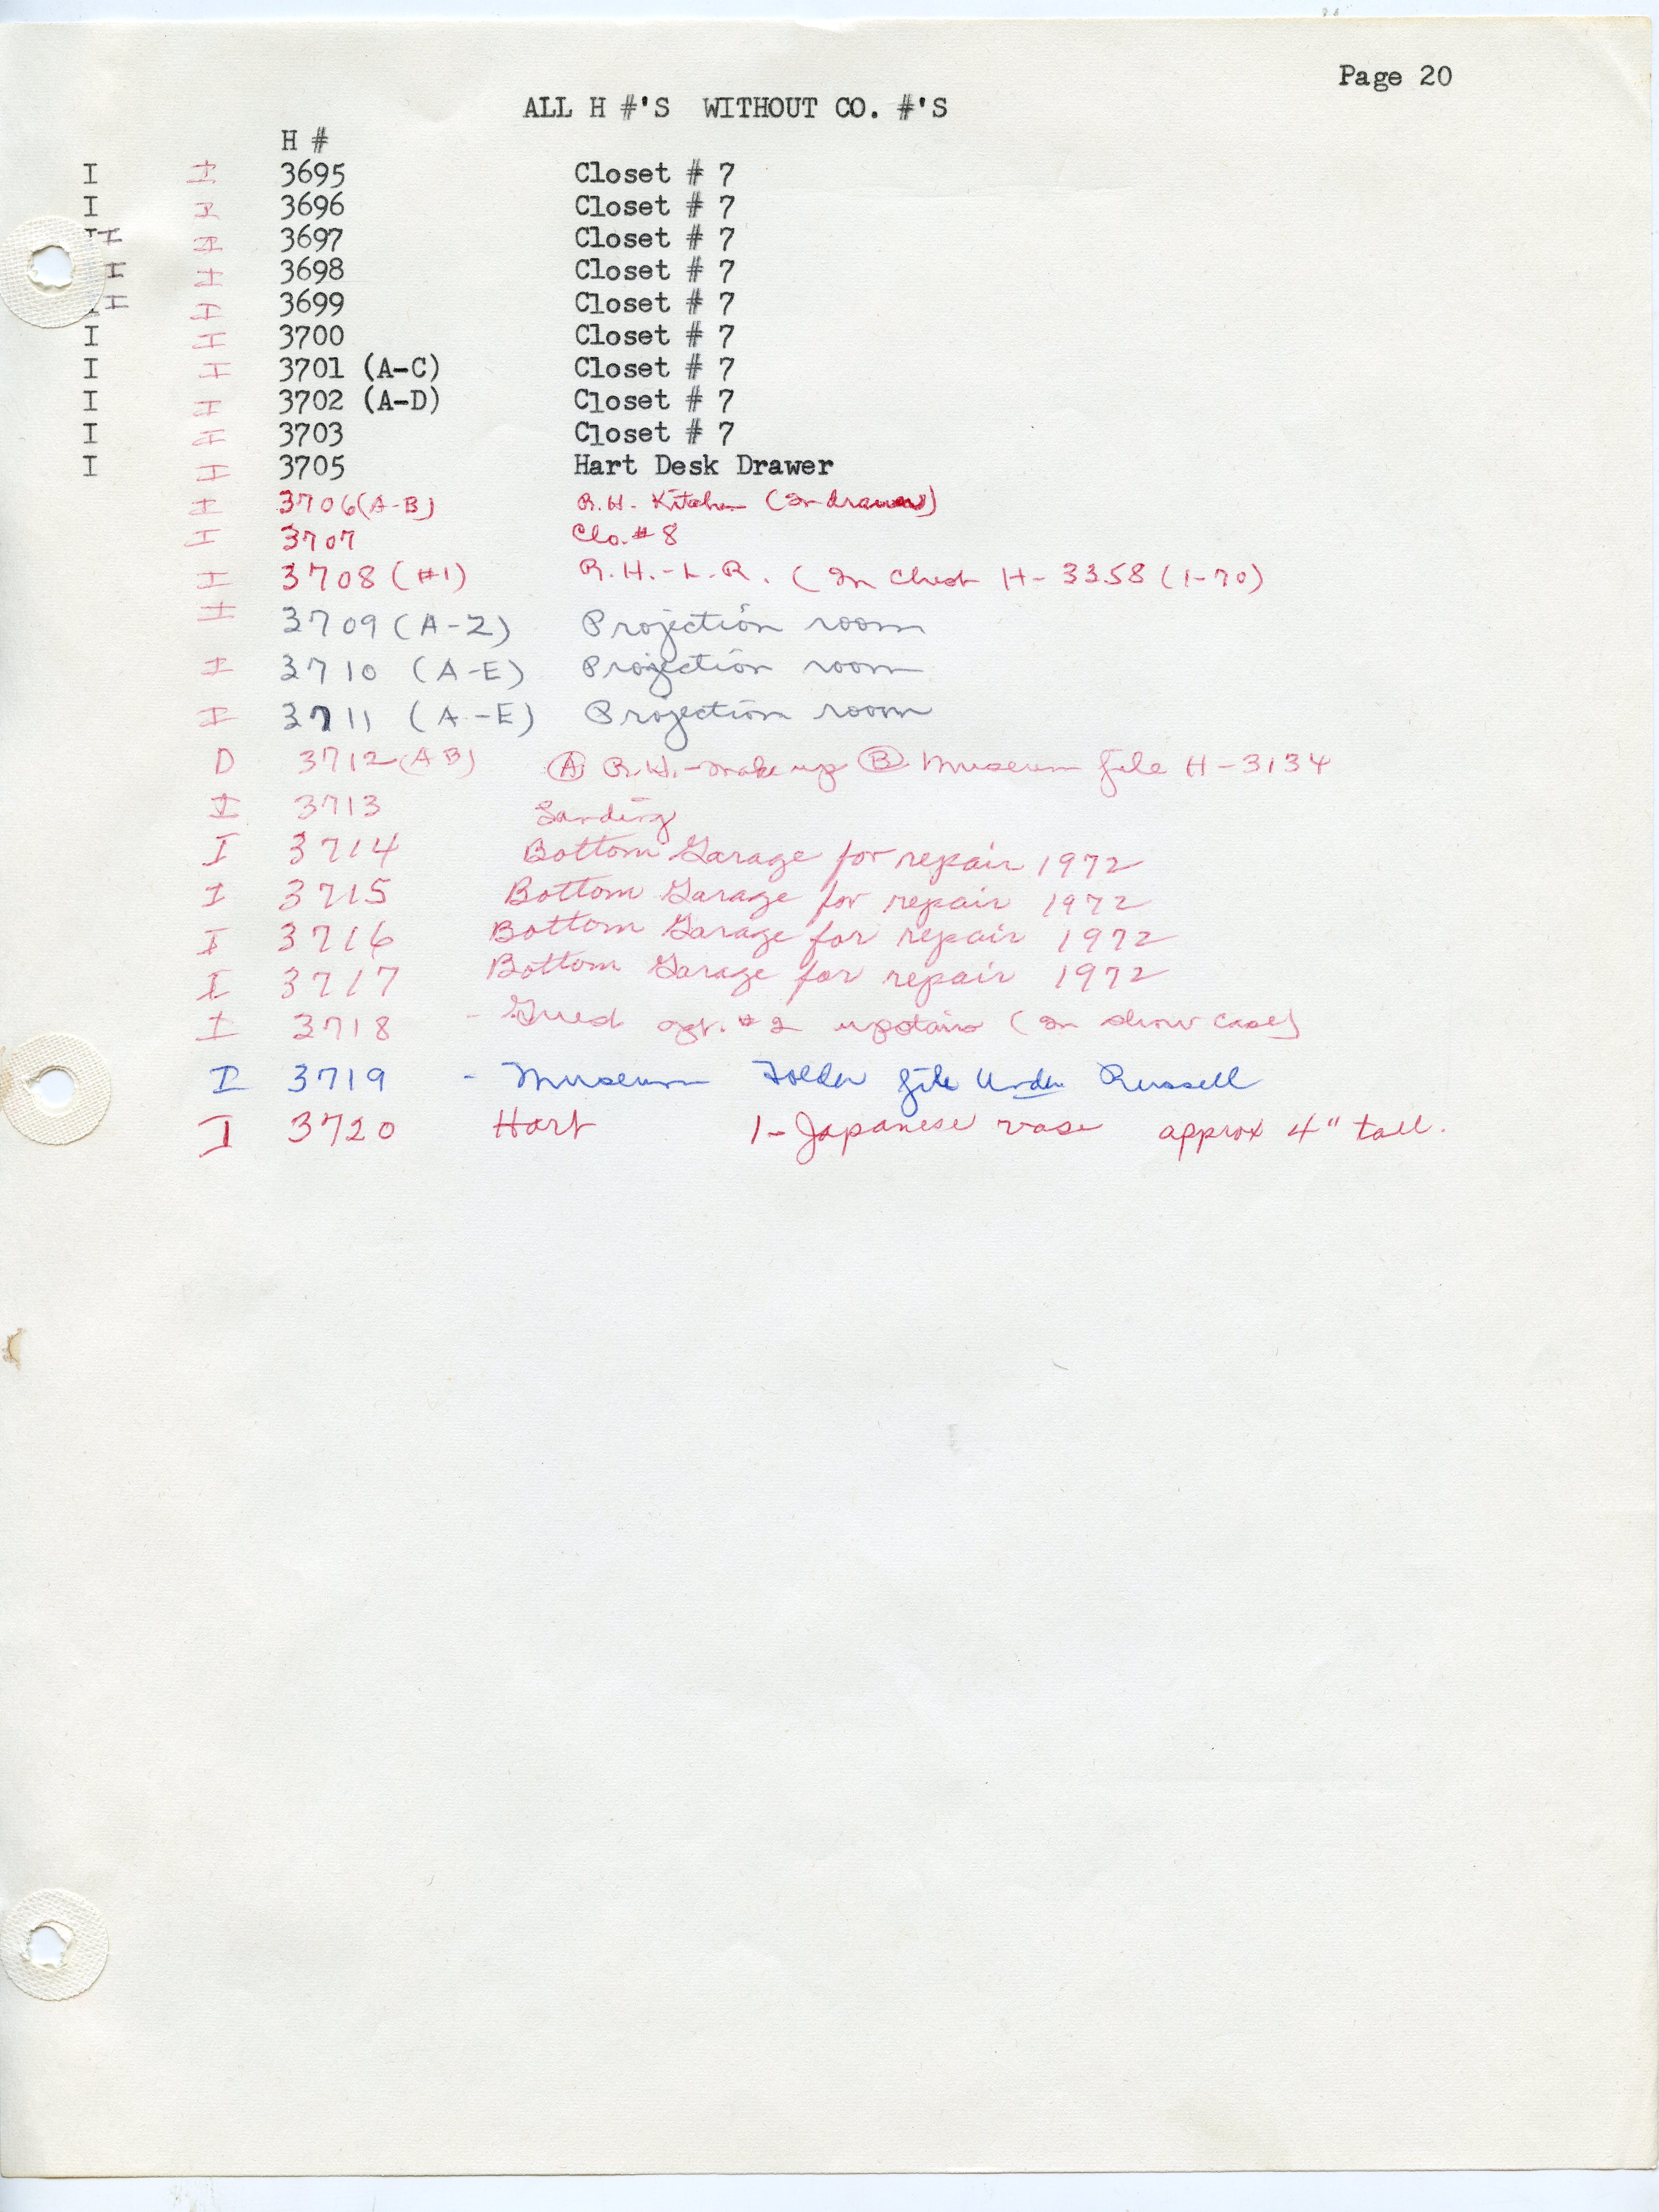 Page 20
ALL H #'S WITHOUT CO. #'S
H #
I I 3695 Closet # 7
I I 3696 Closet # 7
I I 3697 Closet # 7
I I 3698 Closet # 7
I I 3699 Closet # 7
I I 3700 Closet # 7
I I 3701 (A-C) Closet # 7
I I 3702 (A-D) Closet # 7
I I 3703 Closet # 7
I I 3705 Hart Desk Drawer
I 3706(A-B) R.H. Kitchen (In drawer)
I 3707 Clo. # 8
I 3708 (#1) R.H.-L.R. (In Chest H-3358 (1-70)
I 3709 (A-Z) Projection room
I 3710 (A-E) Projection room
I 3711 (A-E) Projection room
D 3712 (AB) A R.H.-make up B Museum file H-3134
I 3713 Landing
I 3714 Bottom Garage for repair 1972
I 3715 Bottom Garage for repair 1972
I 3716 Bottom Garage for repair 1972
I 3717 Bottom Garage for repair 1972
I 3718 - Gued # 2 upstairs (In show case)
I 3719 - Museum Folder file Under Russell
I 3720 Hart 1-Japanese vase approx 4" tall.